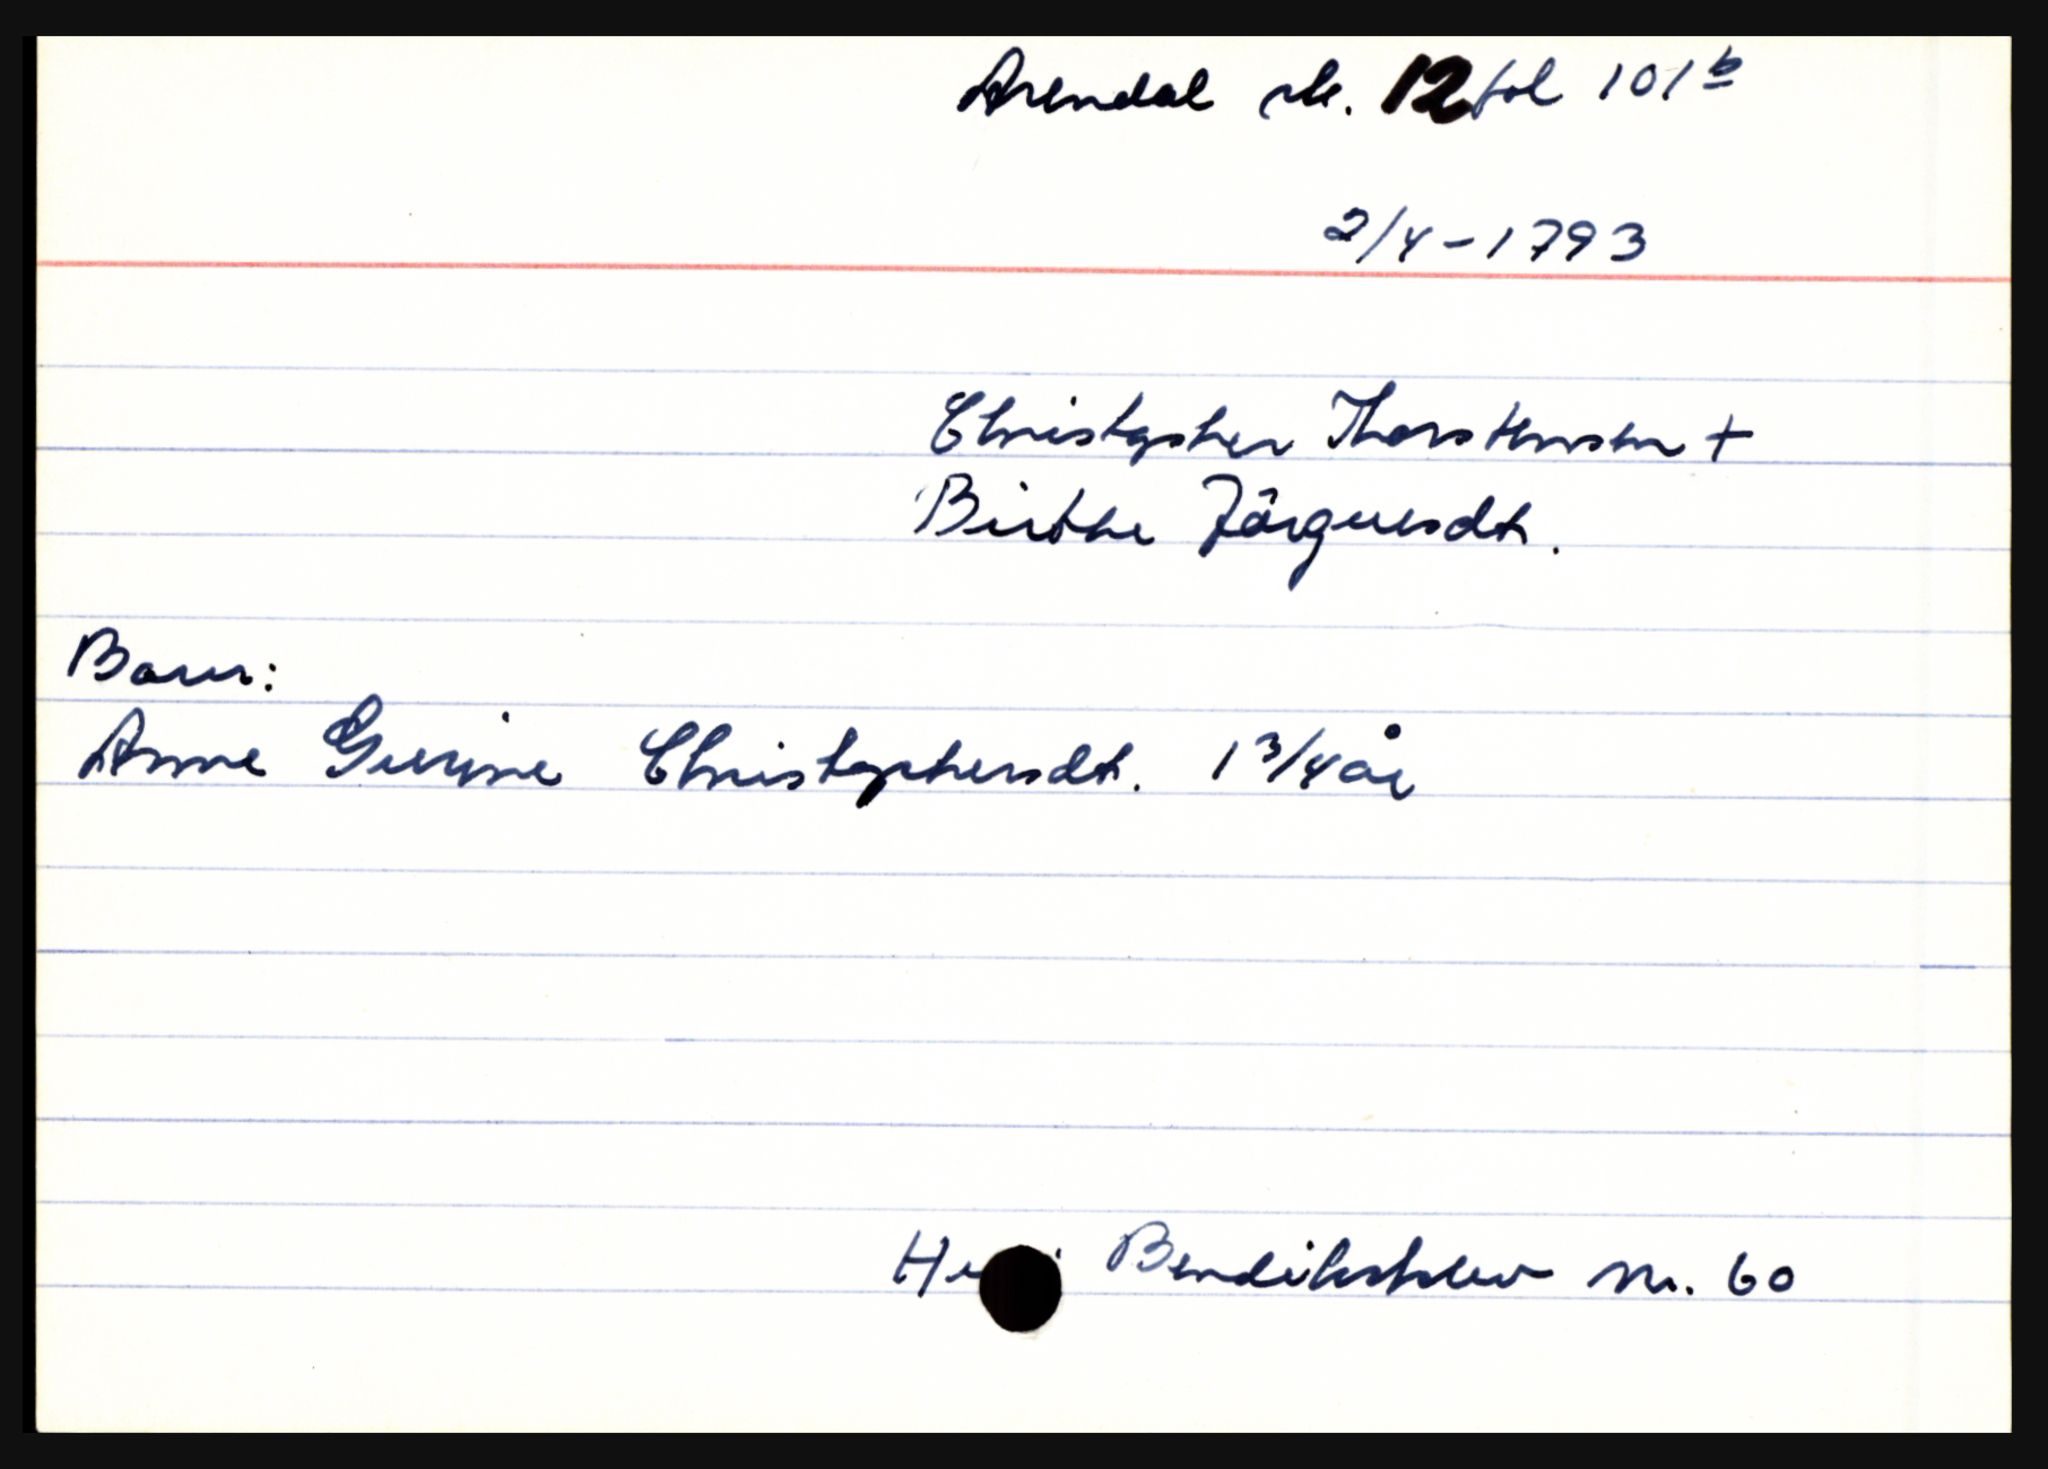 Arendal sk. 12 fol 101b
2/4-1793
Christopher Thorstensen +
Birthe Jörgensdt.
Barn:
Anne Gurine Christophersdt. 1 3/4 år
Bendiksklev nr. 60